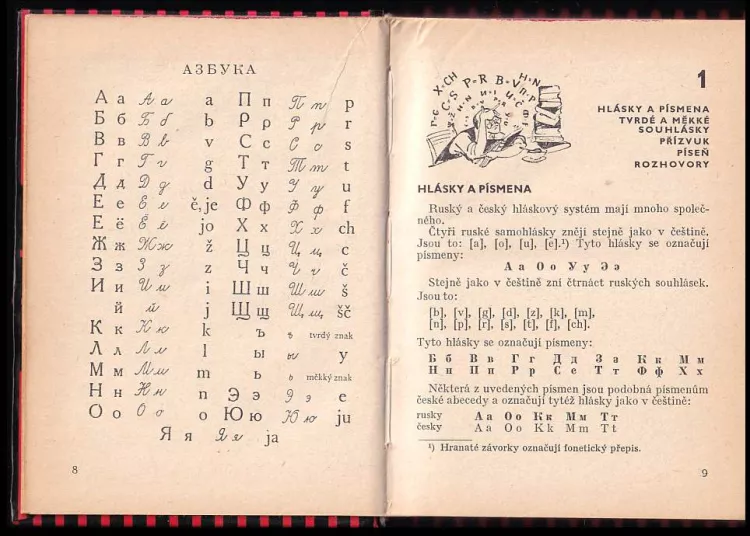 АЗБУКА
А а А а a П п П п p
Б б Б б b Р р Р р r
В в В в v С с С с s
Г г Г г g Т т Т т t
Д д Д д d У у У у u
Е е Е е ě, je Ф ф Ф ф f
Ё ё Ё ё jo Х х Х х ch
Ж ж Ж ж ž Ц ц Ц ц c
З з З з z Ч ч Ч ч č
И и И и i Ш ш Ш ш š
й й j Щ щ Щ щ šč
К к К к k ъ ъ tvrdý znak
Л л Л л l ы ы y
М м М м m ь ь měkký znak
Н н Н н n Э э Э э e
О о О о o Ю ю Ю ю ju
Я я Я я ja
8
1
HLÁSKY A PÍSMENA
TVRDÉ A MĚKKÉ
SOUHLÁSKY
PŘÍZVUK
PÍSEŇ
ROZHOVORY
HLÁSKY A PÍSMENA
Ruský a český hláskový systém mají mnoho společ-
ného.
Čtyři ruské samohlásky znějí stejně jako v češtině.
Jsou to: [a], [o], [u], [e].¹) Tyto hlásky se označují
písmeny:
А а О о У у Э э
Stejně jako v češtině zní čtrnáct ruských souhlásek.
Jsou to:
[b], [v], [g], [d], [z], [k], [m],
[n], [p], [r], [s], [t], [f], [ch].
Tyto hlásky se označují písmeny:
Б б В в Г г Д д З з К к М м
Н н П п Р р С с Т т Ф ф Х х
Některá z uvedených písmen jsou podobná písmenům
české abecedy a označují tytéž hlásky jako v češtině:
rusky А а О о К к М м Т т
česky A a O o K k M m T t
¹) Hranaté závorky označují fonetický přepis.
9